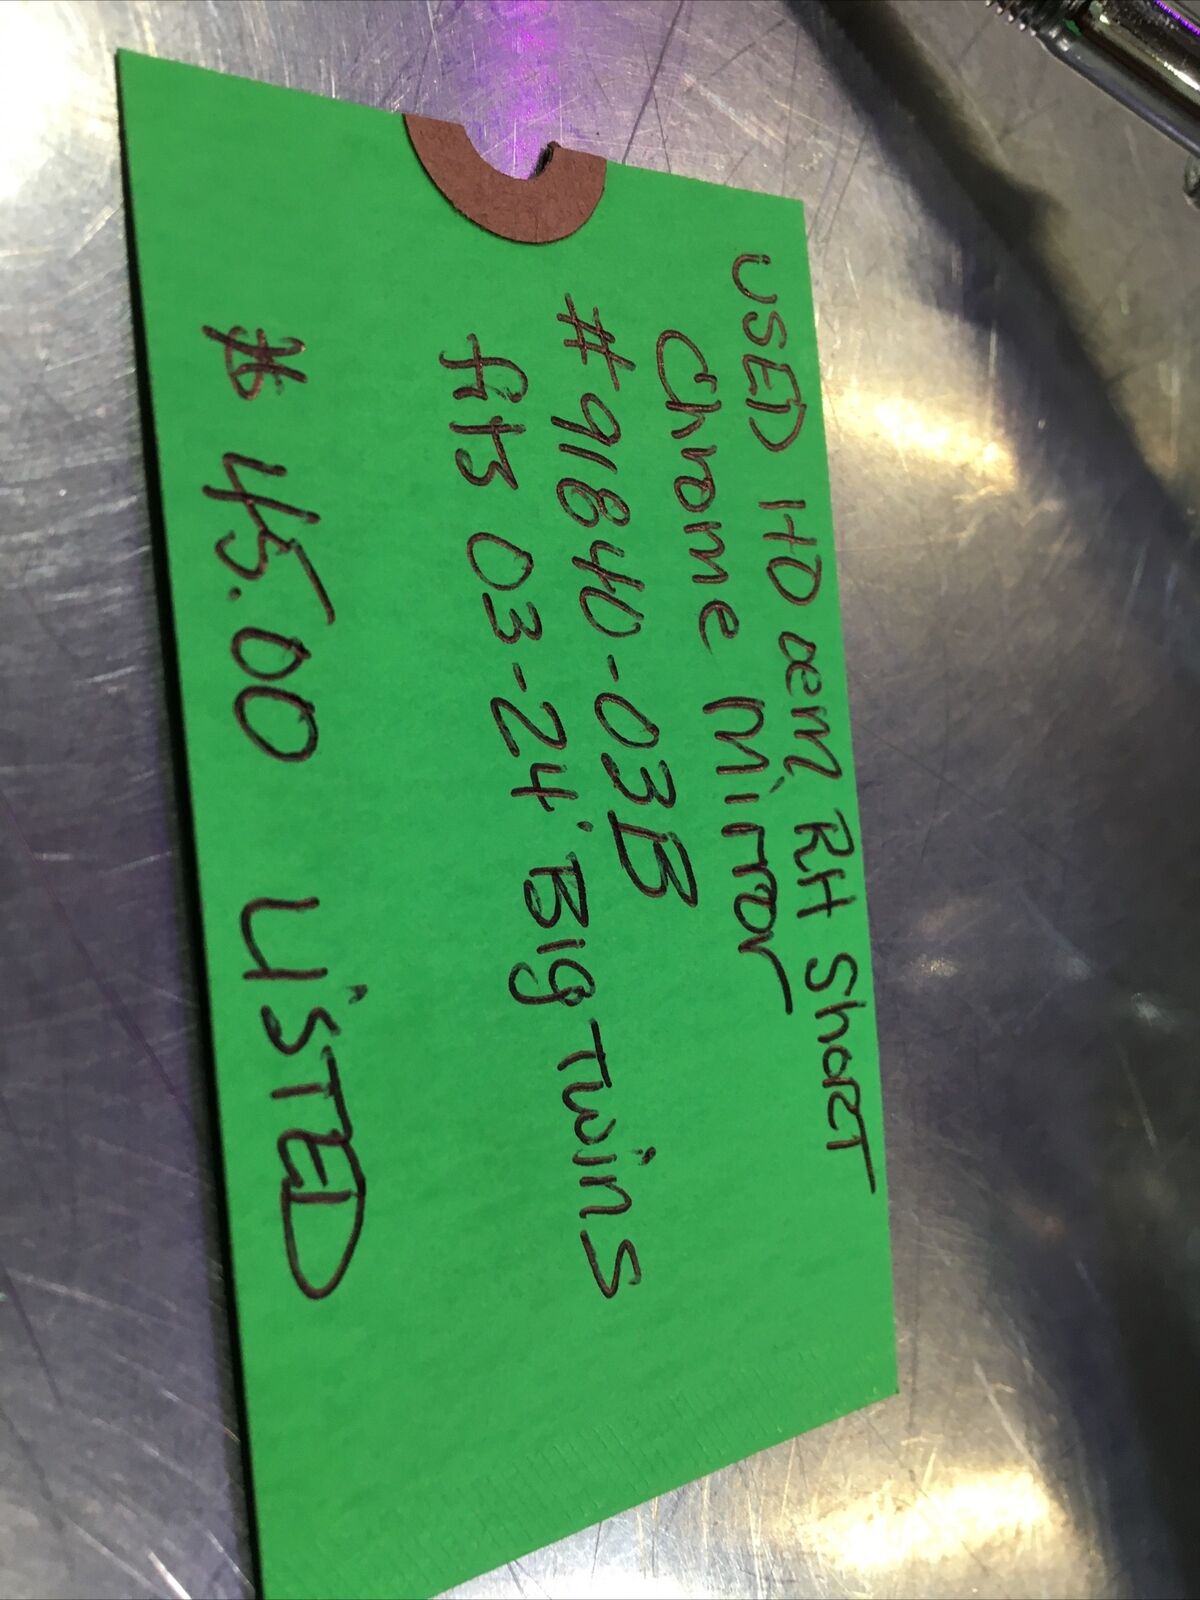 USED HD oem RH ShoRT
Chrome Mirror
#91840-03B
fits 03-24' Big Twins
$ 45.00 LiSTED